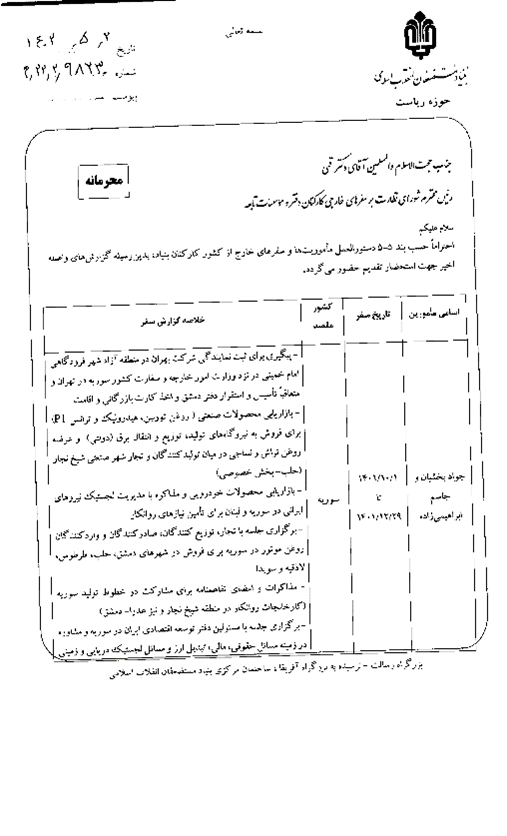 بسمه تعالی
تاریخ ۱۴۰۲،۵،۲
شماره
پیوست
بنیاد مستضعفان انقلاب اسلامی
حوزه ریاست
محرمانه
جناب حجت الاسلام والمسلمین آقای دکتر قمی
رئیس محترم شورای نظارت بر سفرهای خارجی کارکنان دفتر و مؤسسات تابعه
سلام علیکم
احتراماً حسب بند ۵-۵ دستورالعمل مأموریت‌ها و سفرهای خارج از کشور کارکنان بنیاد، بدین‌وسیله گزارش‌های واصله
اخیر جهت استحضار تقدیم حضور می‌گردد.
اسامی مأمورین
تاریخ سفر
کشور مقصد
خلاصه گزارش سفر
جواد بخشیان و
جاسم
ابراهیمی‌زاده
۱۴۰۱/۱۰/۱
تا
۱۴۰۱/۱۲/۲۹
سوریه
- پیگیری برای ثبت نمایندگی شرکت بهران در منطقه آزاد شهر فرودگاهی
امام خمینی در نزد وزارت امور خارجه و سفارت کشور سوریه در تهران و
متعاقباً تأسیس و استقرار دفتر دمشق و اخذ کارت بازرگانی و اقامت
- بازاریابی محصولات صنعتی (روغن توربین، هیدرولیک و ترانس P1)
برای فروش به نیروگاه‌های تولید، توزیع و انتقال برق (دولتی) و عرضه
روغن تراش و نساجی در میان تولیدکنندگان و تجار شهر صنعتی شیخ نجار
(حلب- بخش خصوصی)
- بازاریابی محصولات خودرویی و مذاکره با مدیریت لجستیک نیروهای
ایرانی در سوریه و لبنان برای تأمین نیازهای روانکار
- برگزاری جلسه با تجار، توزیع کنندگان، صادرکنندگان و واردکنندگان
روغن موتور در سوریه برای فروش در شهرهای دمشق، حلب، طرطوس،
لاذقیه و سویدا
- مذاکرات و امضای تفاهمنامه برای مشارکت در خطوط تولید سوریه
(کارخانجات روانکار در منطقه شیخ نجار و نیز عدرا- دمشق)
- برگزاری جلسه با مسئولین دفتر توسعه اقتصادی ایران در سوریه و مشاوره
در زمینه مسائل حقوقی، مالی، تبدیل ارز و مسائل لجستیک دریایی و زمینی
بزرگراه رسالت - نرسیده به بزرگراه آفریقا، ساختمان مرکزی بنیاد مستضعفان انقلاب اسلامی